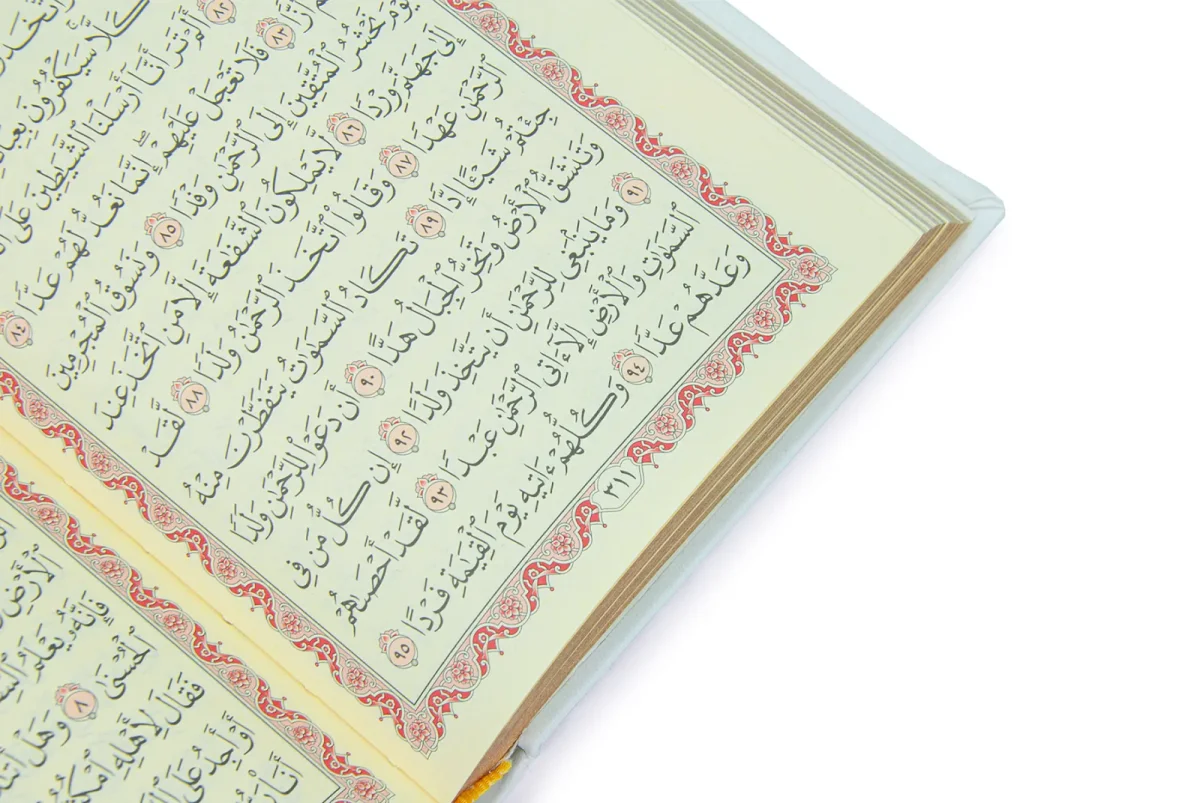 كَلَّا سَيَكْفُرُونَ
٨٢ أَلَمْ تَرَ أَنَّآ أَرْسَلْنَا ٱلشَّيَٰطِينَ عَلَى
٨٣ فَلَا تَعْجَلْ عَلَيْهِمْ إِنَّمَا نَعُدُّ لَهُمْ عَدًّا ٨٤
يَوْمَ نَحْشُرُ ٱلْمُتَّقِينَ إِلَى ٱلرَّحْمَٰنِ وَفْدًا ٨٥ وَنَسُوقُ ٱلْمُجْرِمِينَ
إِلَىٰ جَهَنَّمَ وِرْدًا ٨٦ لَّا يَمْلِكُونَ ٱلشَّفَٰعَةَ إِلَّا مَنِ ٱتَّخَذَ عِندَ
ٱلرَّحْمَٰنِ عَهْدًا ٨٧ وَقَالُوا۟ ٱتَّخَذَ ٱلرَّحْمَٰنُ وَلَدًا ٨٨ لَّقَدْ
جِئْتُمْ شَيْـًٔا إِدًّا ٨٩ تَكَادُ ٱلسَّمَٰوَٰتُ يَتَفَطَّرْنَ مِنْهُ
وَتَنشَقُّ ٱلْأَرْضُ وَتَخِرُّ ٱلْجِبَالُ هَدًّا ٩٠ أَن دَعَوْا۟ لِلرَّحْمَٰنِ وَلَدًا
٩١ وَمَا يَنۢبَغِى لِلرَّحْمَٰنِ أَن يَتَّخِذَ وَلَدًا ٩٢ إِن كُلُّ مَن فِى
ٱلسَّمَٰوَٰتِ وَٱلْأَرْضِ إِلَّآ ءَاتِى ٱلرَّحْمَٰنِ عَبْدًا ٩٣ لَّقَدْ أَحْصَىٰهُمْ
وَعَدَّهُمْ عَدًّا ٩٤ وَكُلُّهُمْ ءَاتِيهِ يَوْمَ ٱلْقِيَٰمَةِ فَرْدًا ٩٥
٣١١
ٱلْأَرْضِ
فَإِنَّهُۥ يَعْلَمُ
ٱلْحُسْنَىٰ ٨ وَهَلْ
فَقَالَ لِأَهْلِهِ
أَوْ أَجِدُ عَلَى